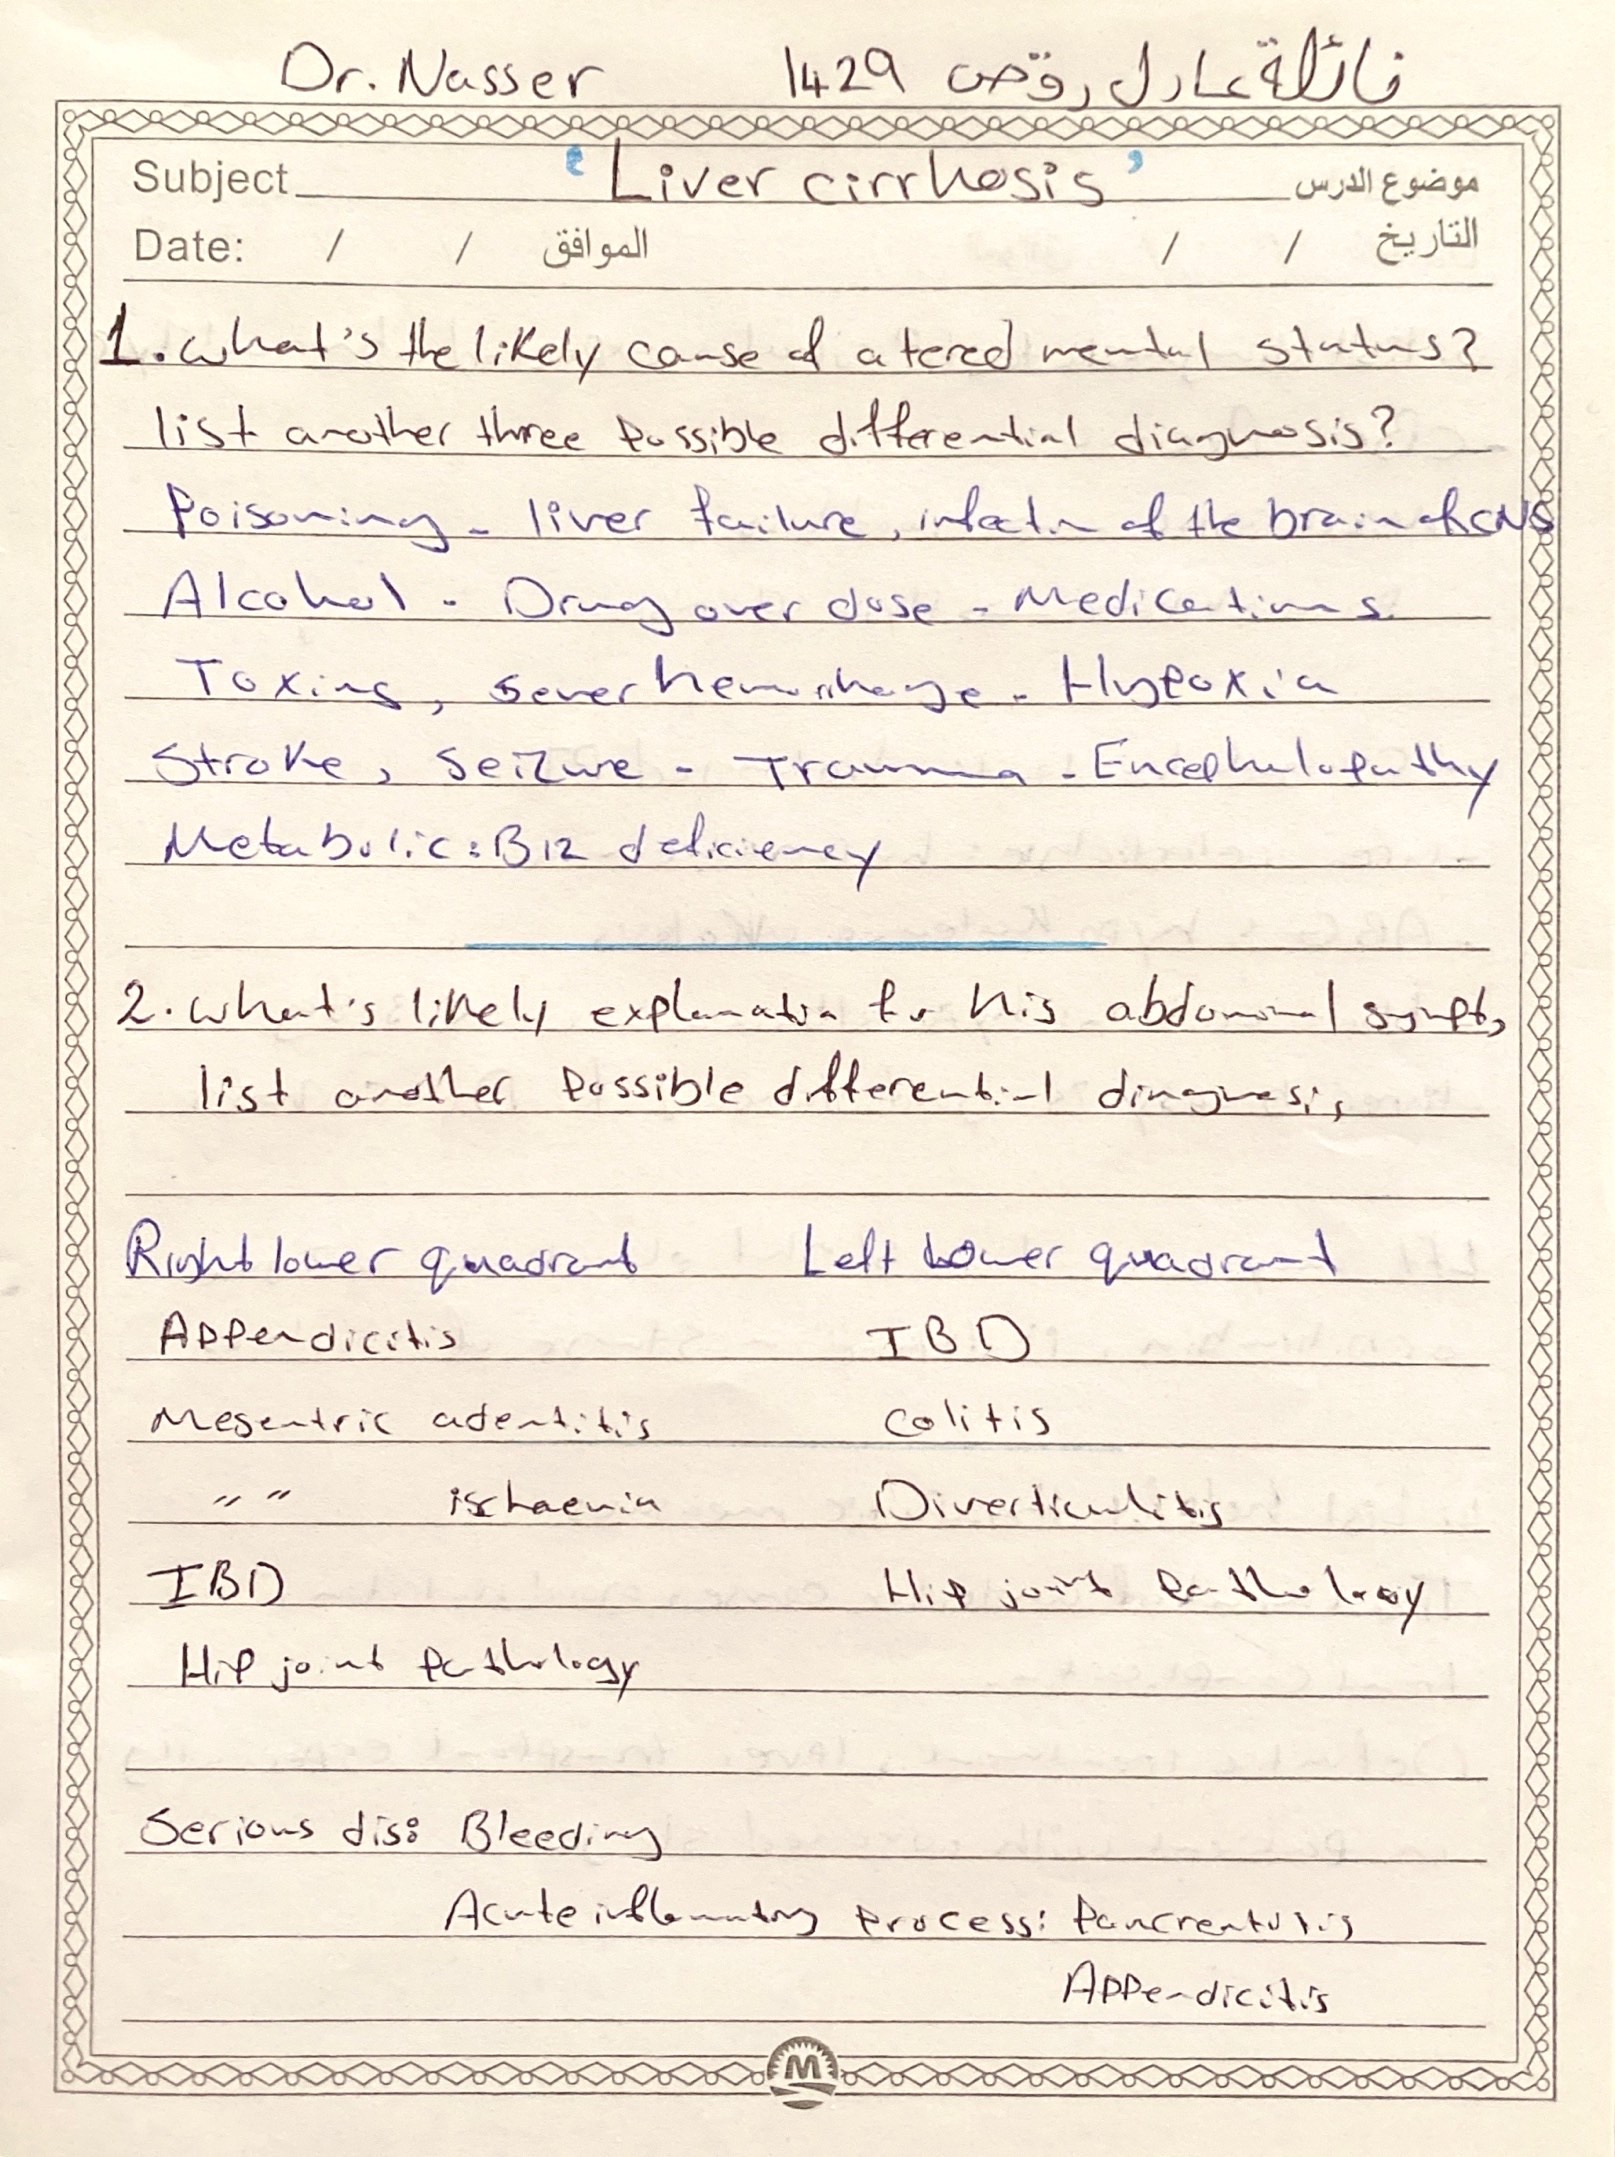 Dr. Nasser 1429 فائلة عادل روقص
Subject 'Liver cirrhosis' موضوع الدرس
Date: / / الموافق / / التاريخ
1. what's the likely cause of atered mental status?
list another three possible differential diagnosis?
Poisoning - liver failure, infectin of the brain of CNS
Alcohol - Drug over dose - Medications.
Toxins, sever hemorrhage - Hypoxia
Stroke, Seizure - Trauma - Encephalopathy
Metabolic: B12 deficiency
2. what's likely explanation for his abdominal sympt,
list another possible differential diagnosis,
Right lower quadrant Left lower quadrant
Appendicitis IBD
Mesentric adentitis colitis
" " ischaemia Diverticulitis
IBD Hip joint pathology
Hip joint pathology
Serious dis: Bleeding
Acute inflammatory process: Pancreatitis
Appendicitis
M